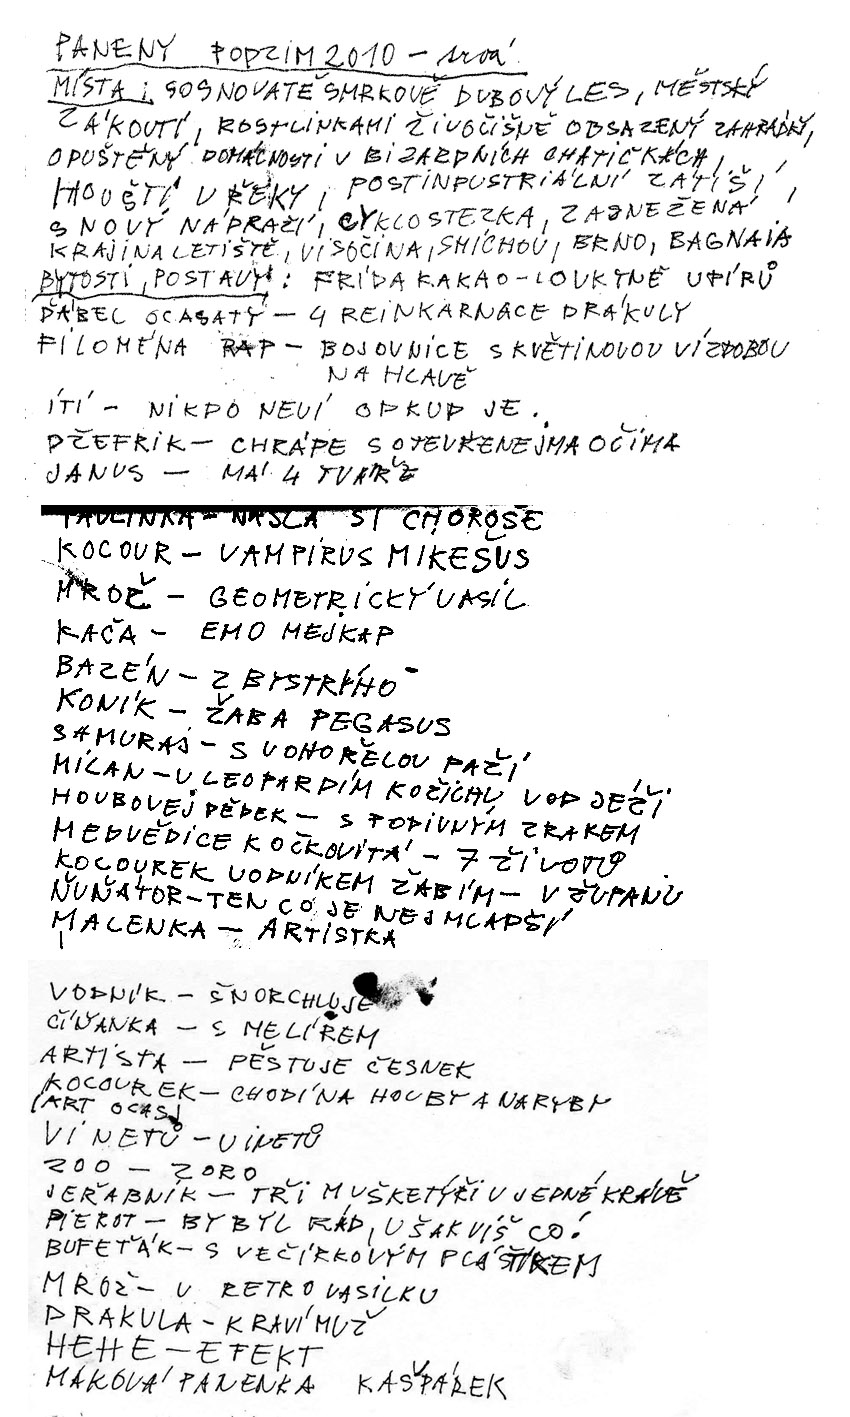 PANENY PODZIM 2010 –
MÍSTA: SOSNOVATĚ SMRKOVĚ DUBOVÝ LES, MĚSTSKÝ
ZÁKOUTÍ, ROSTLINKAMI ŽIVOČIŠNĚ OBSAZENÝ ZAHRÁDKY,
OPUŠTĚNÝ DOMÁCNOSTI V BIZARDNÍCH CHATIČKÁCH,
HOUŠTÍ U ŘEKY, POSTINDUSTRIÁLNÍ ZÁTIŠÍ,
SNOVÝ NÁDRAŽÍ, CYKLOSTEZKA, ZASNEŽENÁ
KRAJINA LETIŠTĚ, VISOČINA, SMÍCHOV, BRNO, BAGNAIA
BYTOSTI, POSTAVY: FRÍDA KAKAO – LOUKYNĚ UPÍRŮ
ĎÁBEL OCASATÝ – 4 REINKARNACE DRÁKULY
FILOMÉNA RAP – BOJOVNICE S KVĚTINOVOU VÍZDOBOU
NA HLAVĚ
ÍTÍ – NIKDO NEVÍ ODKUD JE.
DŽEFRIK – CHRÁPE S OTEVŘENEJMA OČIMA
JANUS – MÁ 4 TVÁŘE
PAULINKA – NAŠLA SI CHOROŠE
KOCOUR – VAMPÍRUS MIKEŠUS
MROŽ – GEOMETRICKÝ VASIL
KAČA – EMO MEJKAP
BAZÉN – Z BYSTRÝHO
KONÍK – ŽABA PEGASUS
SAMURAJ – S VOHOŘELOU PAŽÍ
MILAN – V LEOPARDÍM KOŽICHU VOD JEŽÍ
HOUBOVEJ DĚDEK – S PODIVNÝM ZRAKEM
MEDVĚDICE KOČKOVITÁ – 7 ŽIVOTŮ
KOCOUREK VODNÍKEM ŽABÍM – V ŽUPANU
ŇUŇÁTOR – TEN CO JE NEJMLADŠÍ
MALENKA – ARTISTKA
VODNÍK – ŠNORCHLUJE
ČÍŇANKA – S MELÍREM
ARTISTA – PĚSTUJE ČESNEK
KOCOUREK – CHODÍ NA HOUBY A NA RYBY
(ART OCAS)
VÍNETŮ – VINETŮ
ZOO – ZORO
JEŘABNÍK – TŘI MUŠKETÝŘI V JEDNÉ KRÁVĚ
PIEROT – BY BYL RÁD, VŠAK VÍŠ CO!
BUFEŤÁK – S VEČÍRKOVÝM PLÁŠTÍKEM
MROŽ – V RETROVASILKU
DRAKULA – KRAVÍ MUŽ
HEHE – EFEKT
MAKOVÁ PANENKA KAŠPÁREK